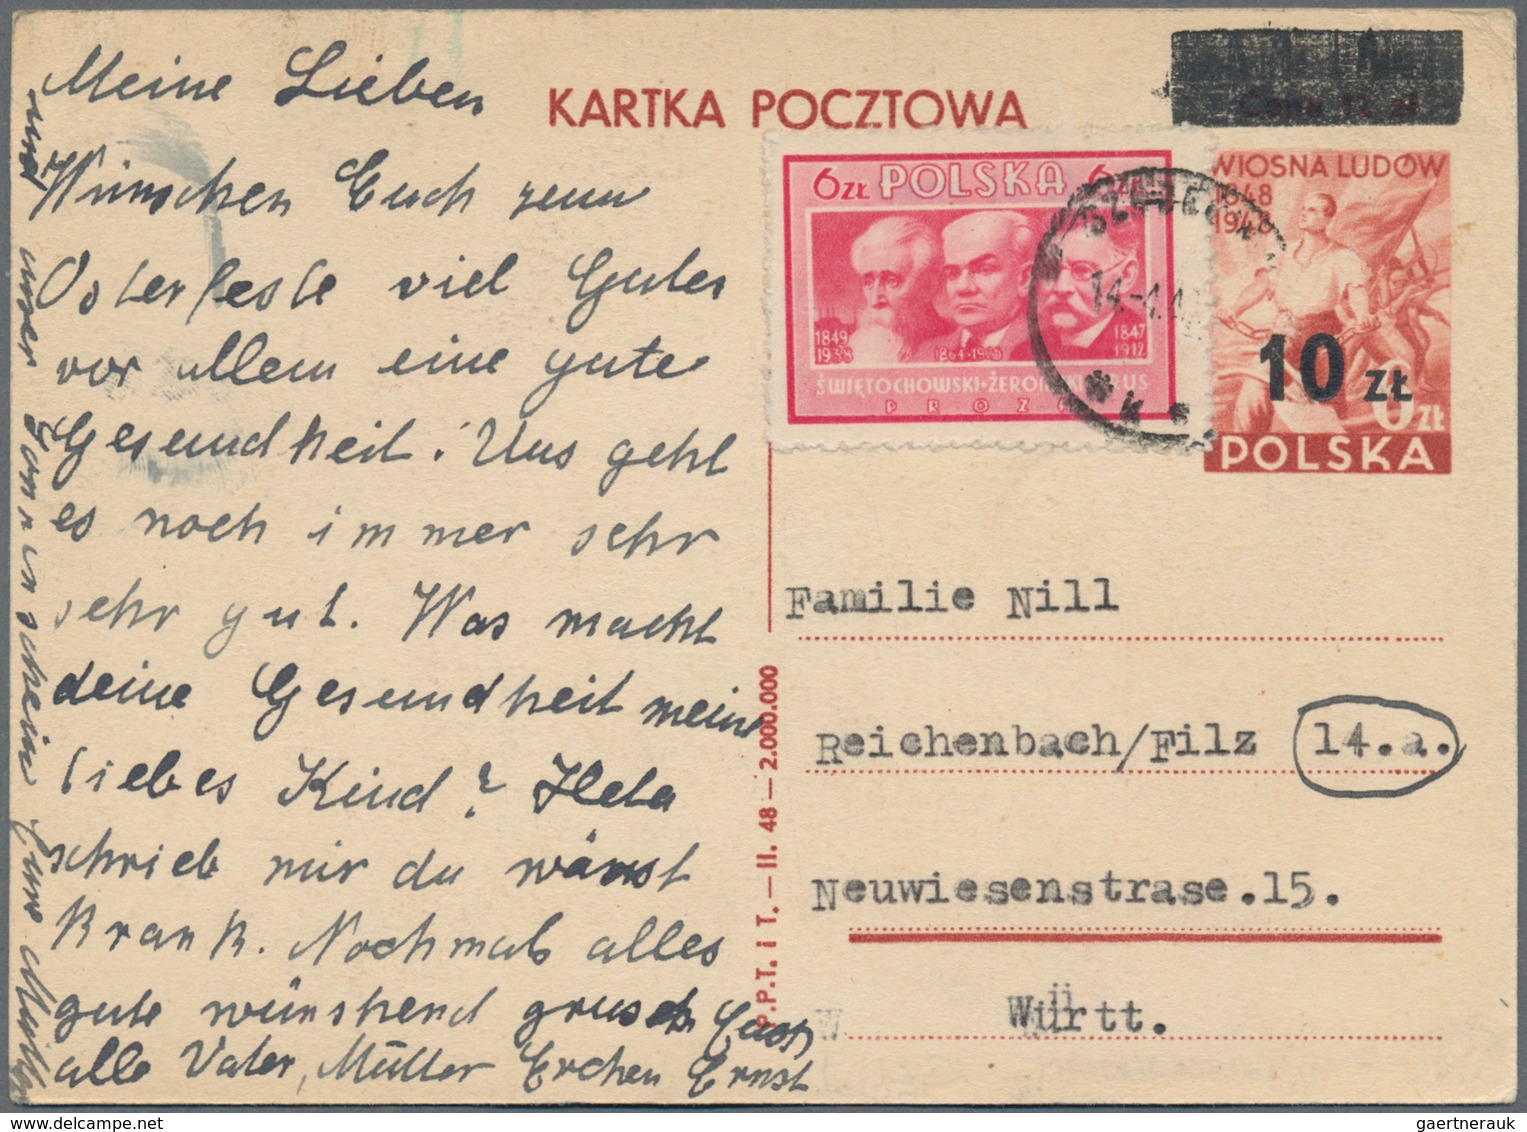 Meine Lieben
Wünschen Euch zum
Osterfeste viel Gutes
vor allem eine gute
Gesundheit. Uns geht
es noch immer sehr
sehr gut. Was macht
deine Gesundheit meine
liebes Kind? Hela
schrieb mir du wärst
Krank. Nochmals alles
gute wünshend grusch Euch
alle Vater, Mutter Erchen Ernst
und unser Sonnenschein Eure
KARTKA POCZTOWA
Cena 12 zł
6 ZŁ POLSKA 6 ZŁ
1849
1938
1864-1925
1847
1912
ŚWIĘTOCHOWSKI·ŻEROMSKI·PRUS
PROZA
14.-4.48
WIOSNA LUDÓW
1848
1948
10 ZŁ
6 ZŁ
POLSKA
P.P.T. i T. — II. 48 — 2.000.000
Familie Nill
Reichenbach/Filz 14.a.
Neuwiesenstrase.15.
Württ.
gaertnerauk